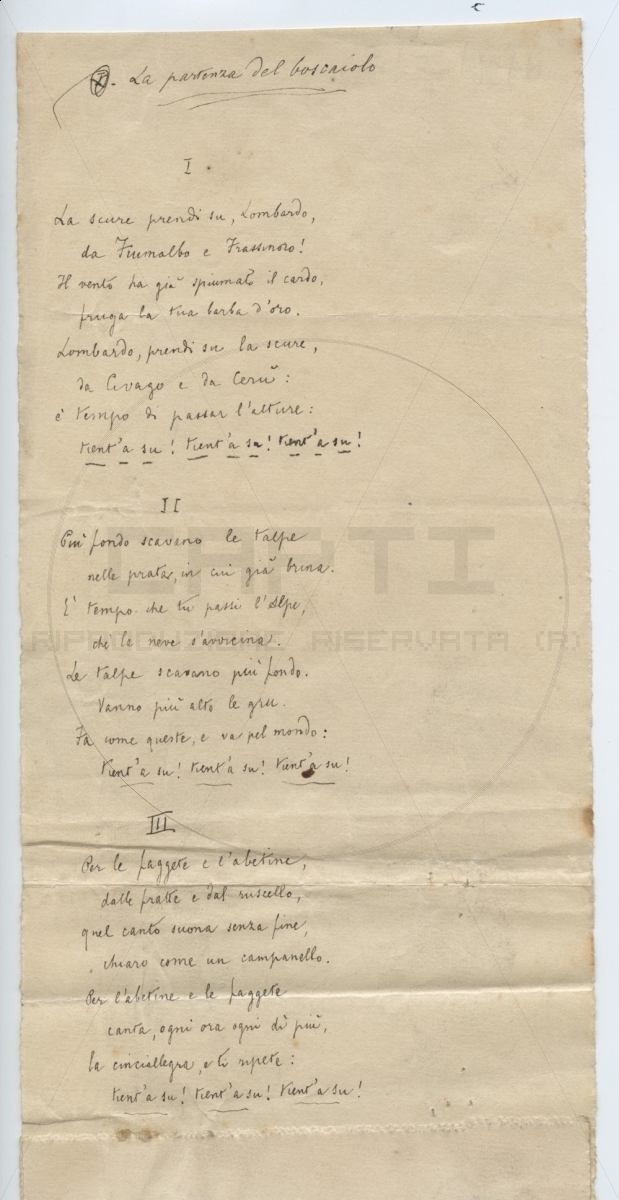 La partenza del boscaiolo
I
La scure prendi su, Lombardo,
da Fiumalbo e Frassinoro!
Il vento ha già spiumato il cardo,
fruga la tua barba d'oro.
Lombardo, prendi su la scure,
da Civago e da Cerù:
è tempo di passar l'alture:
tient'a su! tient'a su! tient'a su!
II
Più fondo scavano le talpe
nelle prata, in cui già brina.
E' tempo che tu passi l'Alpe,
chè la neve s'avvicina.
Le talpe scavano più fondo.
Vanno più alto le gru.
Fa come queste, e va pel mondo:
tient'a su! tient'a su! tient'a su!
III
Per le faggete e l'abetine,
dalle fratte e dal ruscello,
quel canto suona senza fine,
chiaro come un campanello.
Per l'abetine e le faggete
canta, ogni ora ogni dì più,
la cinciallegra, e ti ripete:
tient'a su! tient'a su! tient'a su!
RISERVATA (R)